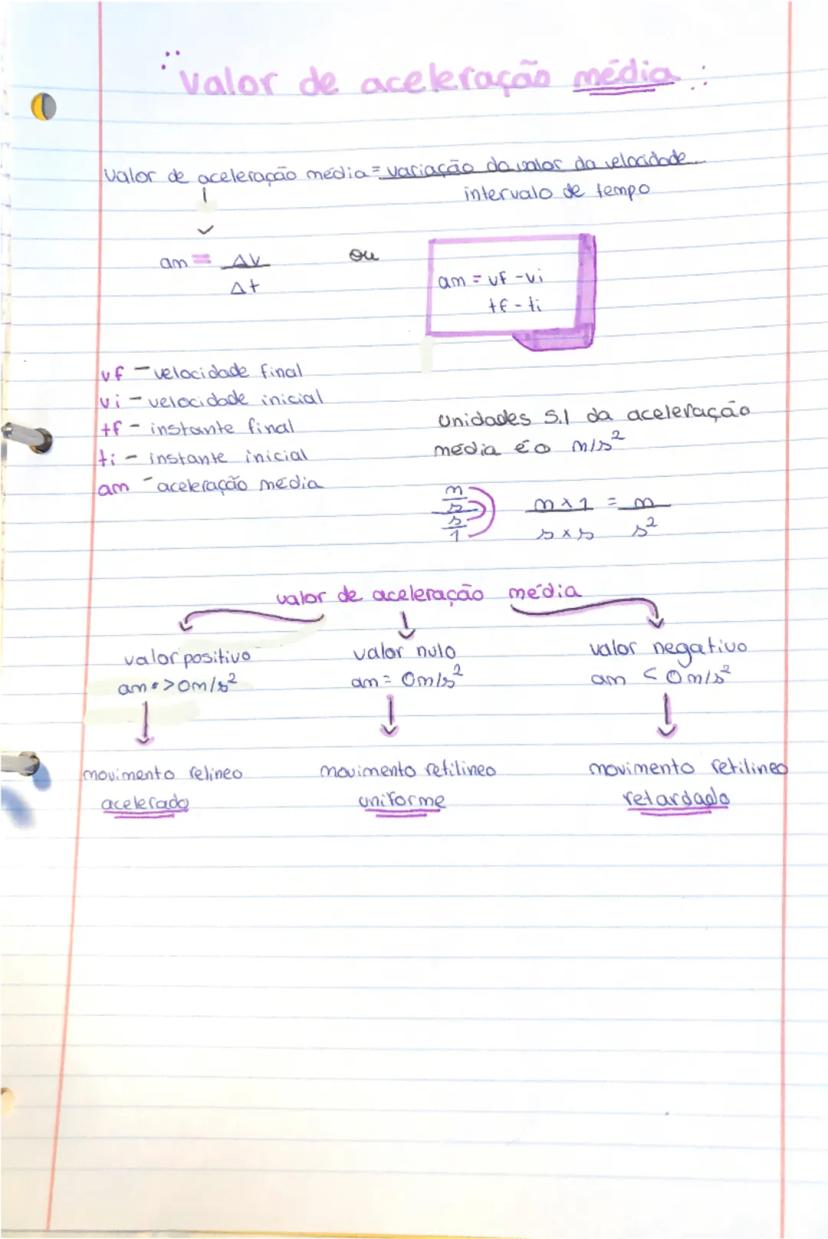 Valor de aceleração média
Valor de aceleração média = variação da valor da velocidade
intervalo de tempo
am = Δv
Δt
ou
am = vf - vi
tf - ti
vf - velocidade final
vi - velocidade inicial
tf - instante final
ti - instante inicial
am - aceleração média
Unidades S.I da aceleração
média é o m/s²
m
s
s
1
m x 1 = m
s x s s²
valor de aceleração média
valor positivo
am > 0m/s²
movimento relineo
acelerado
valor nulo
am = 0m/s²
movimento retilineo
uniforme
valor negativo
am < 0m/s²
movimento retilineo
retardado